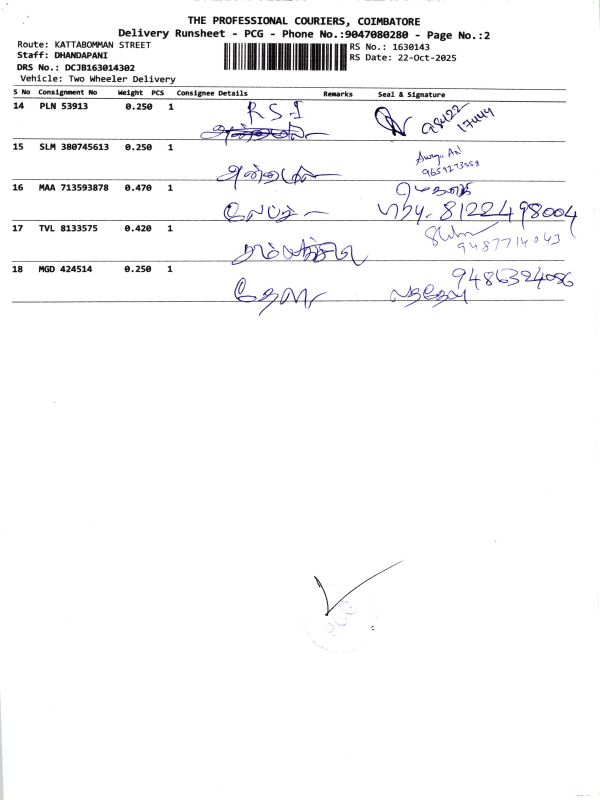 THE PROFESSIONAL COURIERS, COIMBATORE
Delivery Runsheet - PCG - Phone No.:9047080280 - Page No.:2
Route: KATTABOMMAN STREET
Staff: DHANDAPANI
DRS No.: DCJB163014302
Vehicle: Two Wheeler Delivery
RS No.: 1630143
RS Date: 22-Oct-2025
S No Consignment No Weight PCS Consignee Details Remarks Seal & Signature
14 PLN 53913 0.250 1 R S I
98422 17449
15 SLM 380745613 0.250 1
9659273058
16 MAA 713593878 0.470 1
8122498004
17 TVL 8133575 0.420 1
9487714043
18 MGD 424514 0.250 1
9486324086